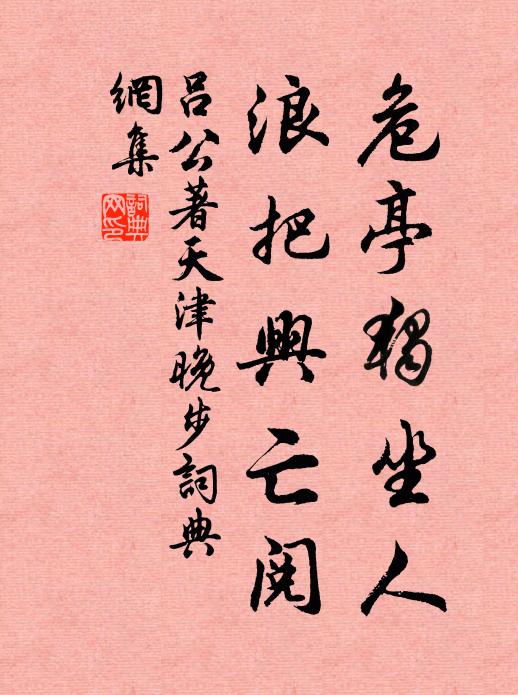 危亭獨坐人
浪把興亡閱
呂公著天津晚步詞典
網集
詞典網印